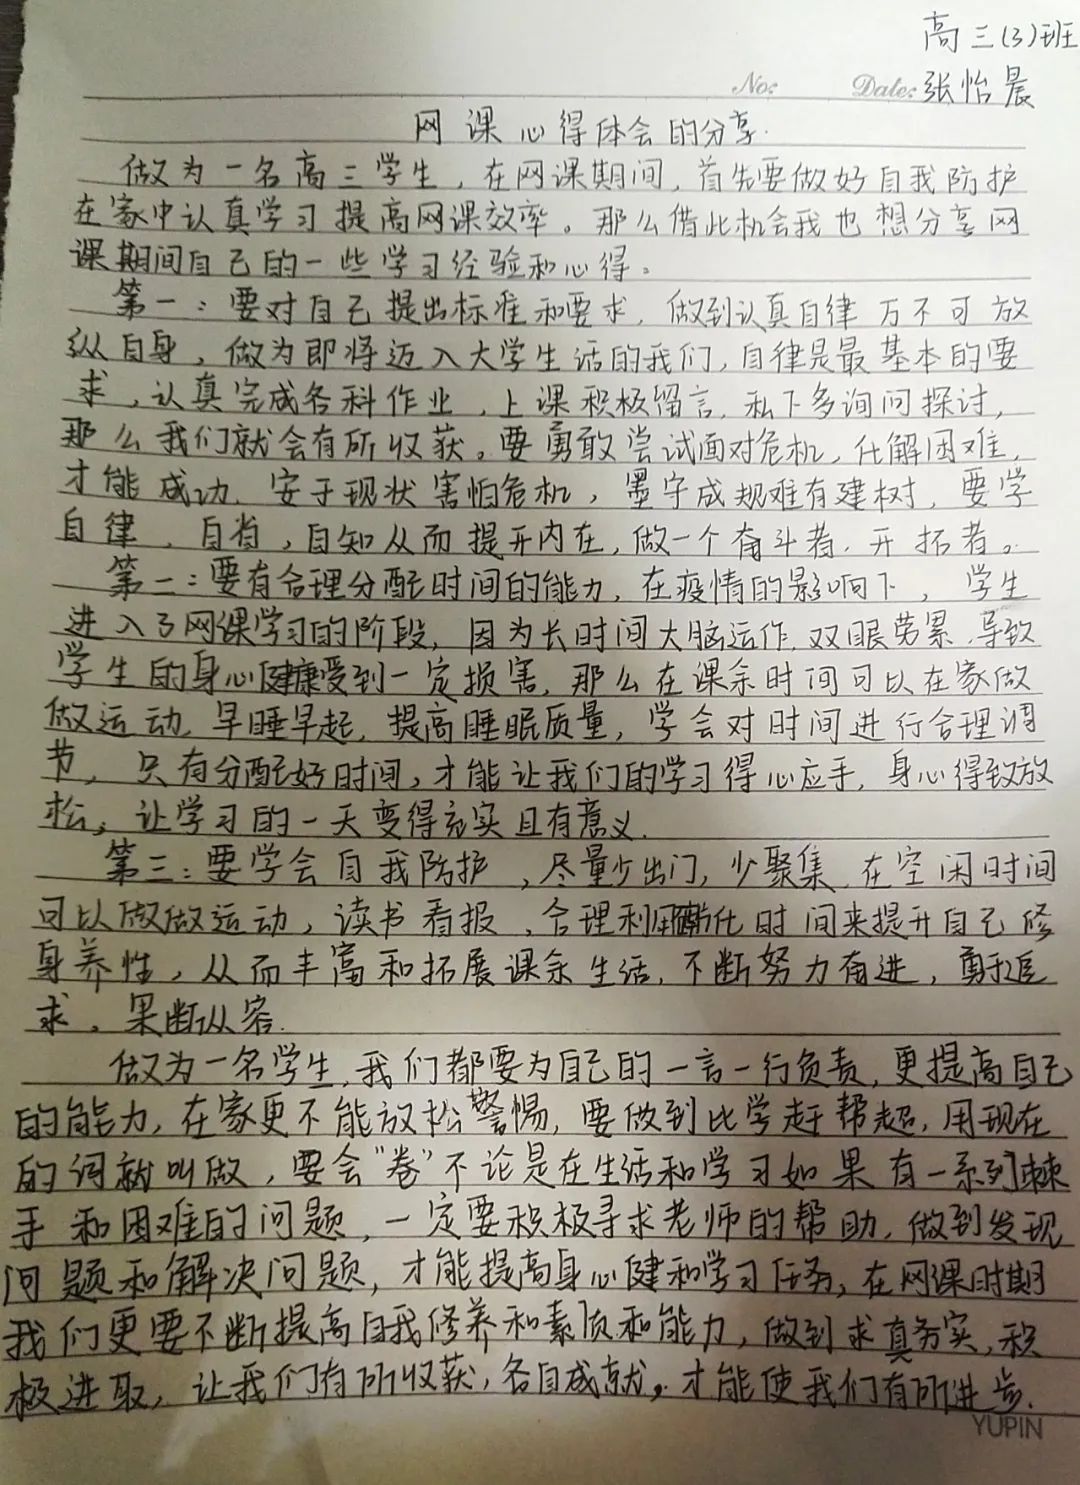 高三(3)班
No:
Date: 张怡晨
网课心得体会的分享.
做为一名高三学生，在网课期间，首先要做好自我防护
在家中认真学习提高网课效率。那么借此机会我也想分享网
课期间自己的一些学习经验和心得。
第一：要对自己提出标准和要求，做到认真自律万不可放
纵自身，做为即将迈入大学生活的我们，自律是最基本的要
求，认真完成各科作业，上课积极留言，私下多询问探讨，
那么我们就会有所收获。要勇敢尝试面对危机，化解困难，
才能成功，安于现状害怕危机，墨守成规难有建树，要学
自律，自省，自知从而提升内在，做一个奋斗者，开拓者。
第二：要有合理分配时间的能力，在疫情的影响下，学生
进入了网课学习的阶段，因为长时间大脑运作，双眼劳累，导致
学生的身心健康受到一定损害，那么在课余时间可以在家做
做运动，早睡早起，提高睡眠质量，学会对时间进行合理调
节，只有分配好时间，才能让我们的学习得心应手，身心得致放
松，让学习的一天变得充实且有意义.
第三：要学会自我防护，尽量少出门，少聚集，在空闲时间
可以做做运动，读书看报，合理利用化时间来提升自己修
身养性，从而丰富和拓展课余生活，不断努力奋进，勇于追
求，果断从容.
做为一名学生，我们都要为自己的一言一行负责，更提高自己
的能力，在家更不能放松警惕，要做到比学赶帮超，用现在
的词就叫做，要会“卷”不论是在生活和学习如果有一系列棘
手和困难的问题，一定要积极寻求老师的帮助，做到发现
问题和解决问题，才能提高身心健和学习任务，在网课时期
我们更要不断提高自我修养和素质和能力，做到求真务实，积
极进取，让我们有所收获，各自成就，才能使我们有所进步.
YUPIN